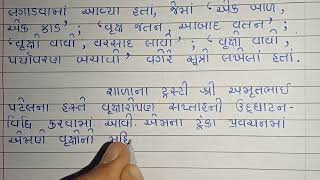 લગાડવામાં આવ્યા હતા, જેમાં 'એક બાળ,
એક ઝાડ' ; 'વૃક્ષ જતન, આબાદ વતન' ;
'વૃક્ષો વાવો, વરસાદ લાવો' ; 'વૃક્ષો વાવો,
પર્યાવરણ બચાવો' વગેરે સૂત્રો લખેલાં હતાં.
શાળાના ટ્રસ્ટી શ્રી અમૃતભાઈ
પટેલના હસ્તે વૃક્ષારોપણ સપ્તાહની ઉદ્ઘાટન-
વિધિ કરવામાં આવી. એમના ટૂંકા પ્રવચનમાં
એમણે વૃક્ષોની